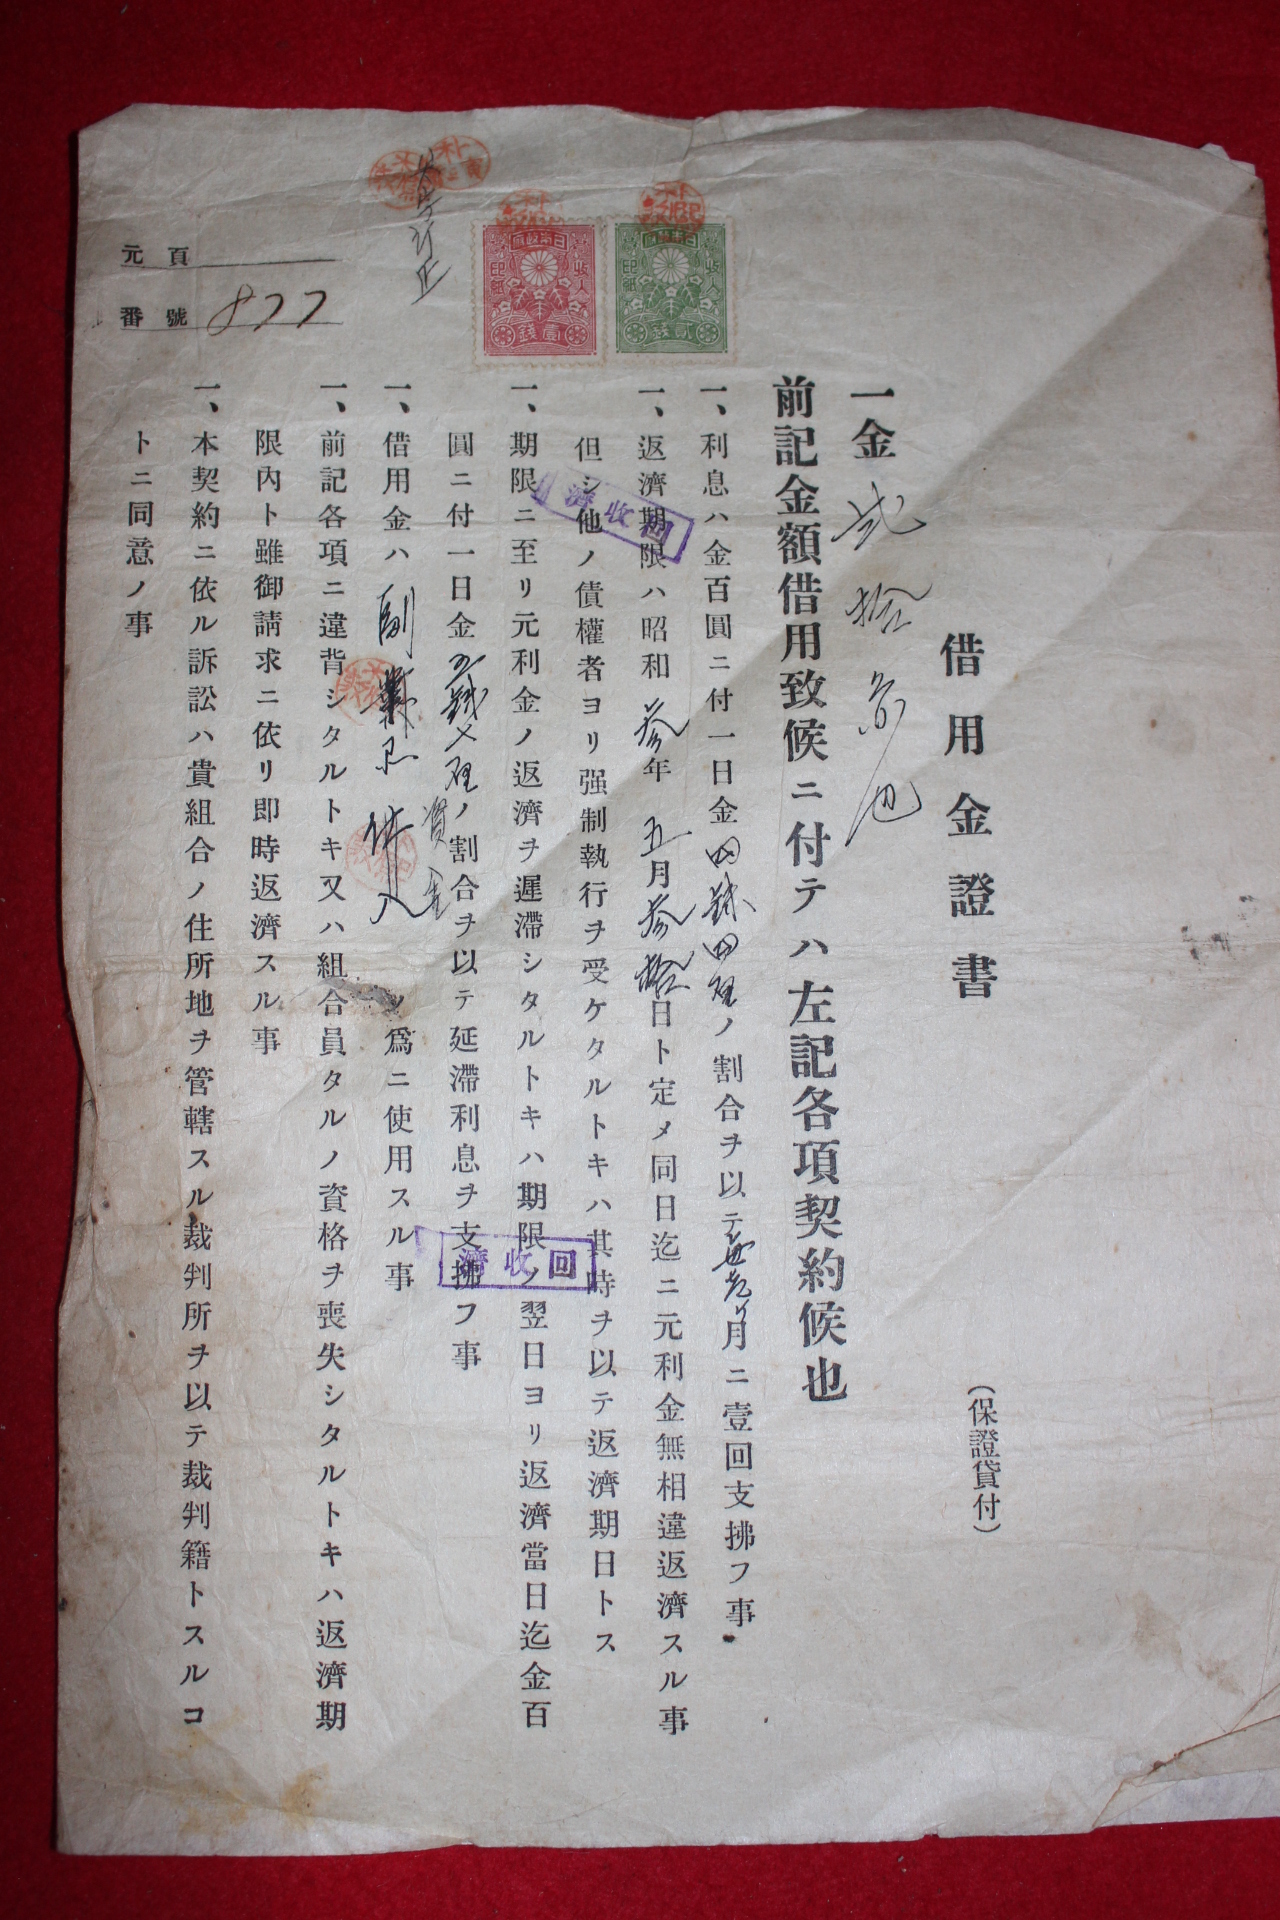 借用金證書
(保證貸付)
一金貳拾圓也
前記金額借用致候ニ付テハ左記各項契約候也
一、利息ハ金百圓ニ付一日金四錢四厘ノ割合ヲ以テ
月ニ壹回支拂フ事
一、返濟期限ハ昭和參年五月參拾日ト定メ同日迄ニ元利金無相違返濟スル事
但シ他ノ債權者ヨリ强制執行ヲ受ケタルトキハ其時ヲ以テ返濟期日トス
一、期限ニ至リ元利金ノ返濟ヲ遲滯シタルトキハ期限ノ翌日ヨリ返濟當日迄金百
圓ニ付一日金五錢 厘ノ割合ヲ以テ延滯利息ヲ支拂フ事
一、借用金ハ副業 資金ノ爲ニ使用スル事
一、前記各項ニ違背シタルトキ又ハ組合員タルノ資格ヲ喪失シタルトキハ返濟期
限內ト雖御請求ニ依リ卽時返濟スル事
一、本契約ニ依ル訴訟ハ貴組合ノ住所地ヲ管轄スル裁判所ヲ以テ裁判籍トスルコ
トニ同意ノ事
元頁
番號 877
訂正
回收濟
回收濟
收入印紙
貳錢
收入印紙
壹錢